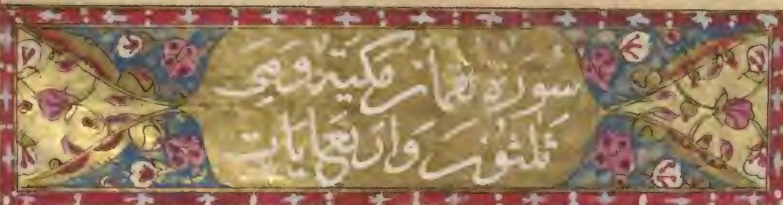 سورة لقمان مكية وهي
ثلثون واربع ايات